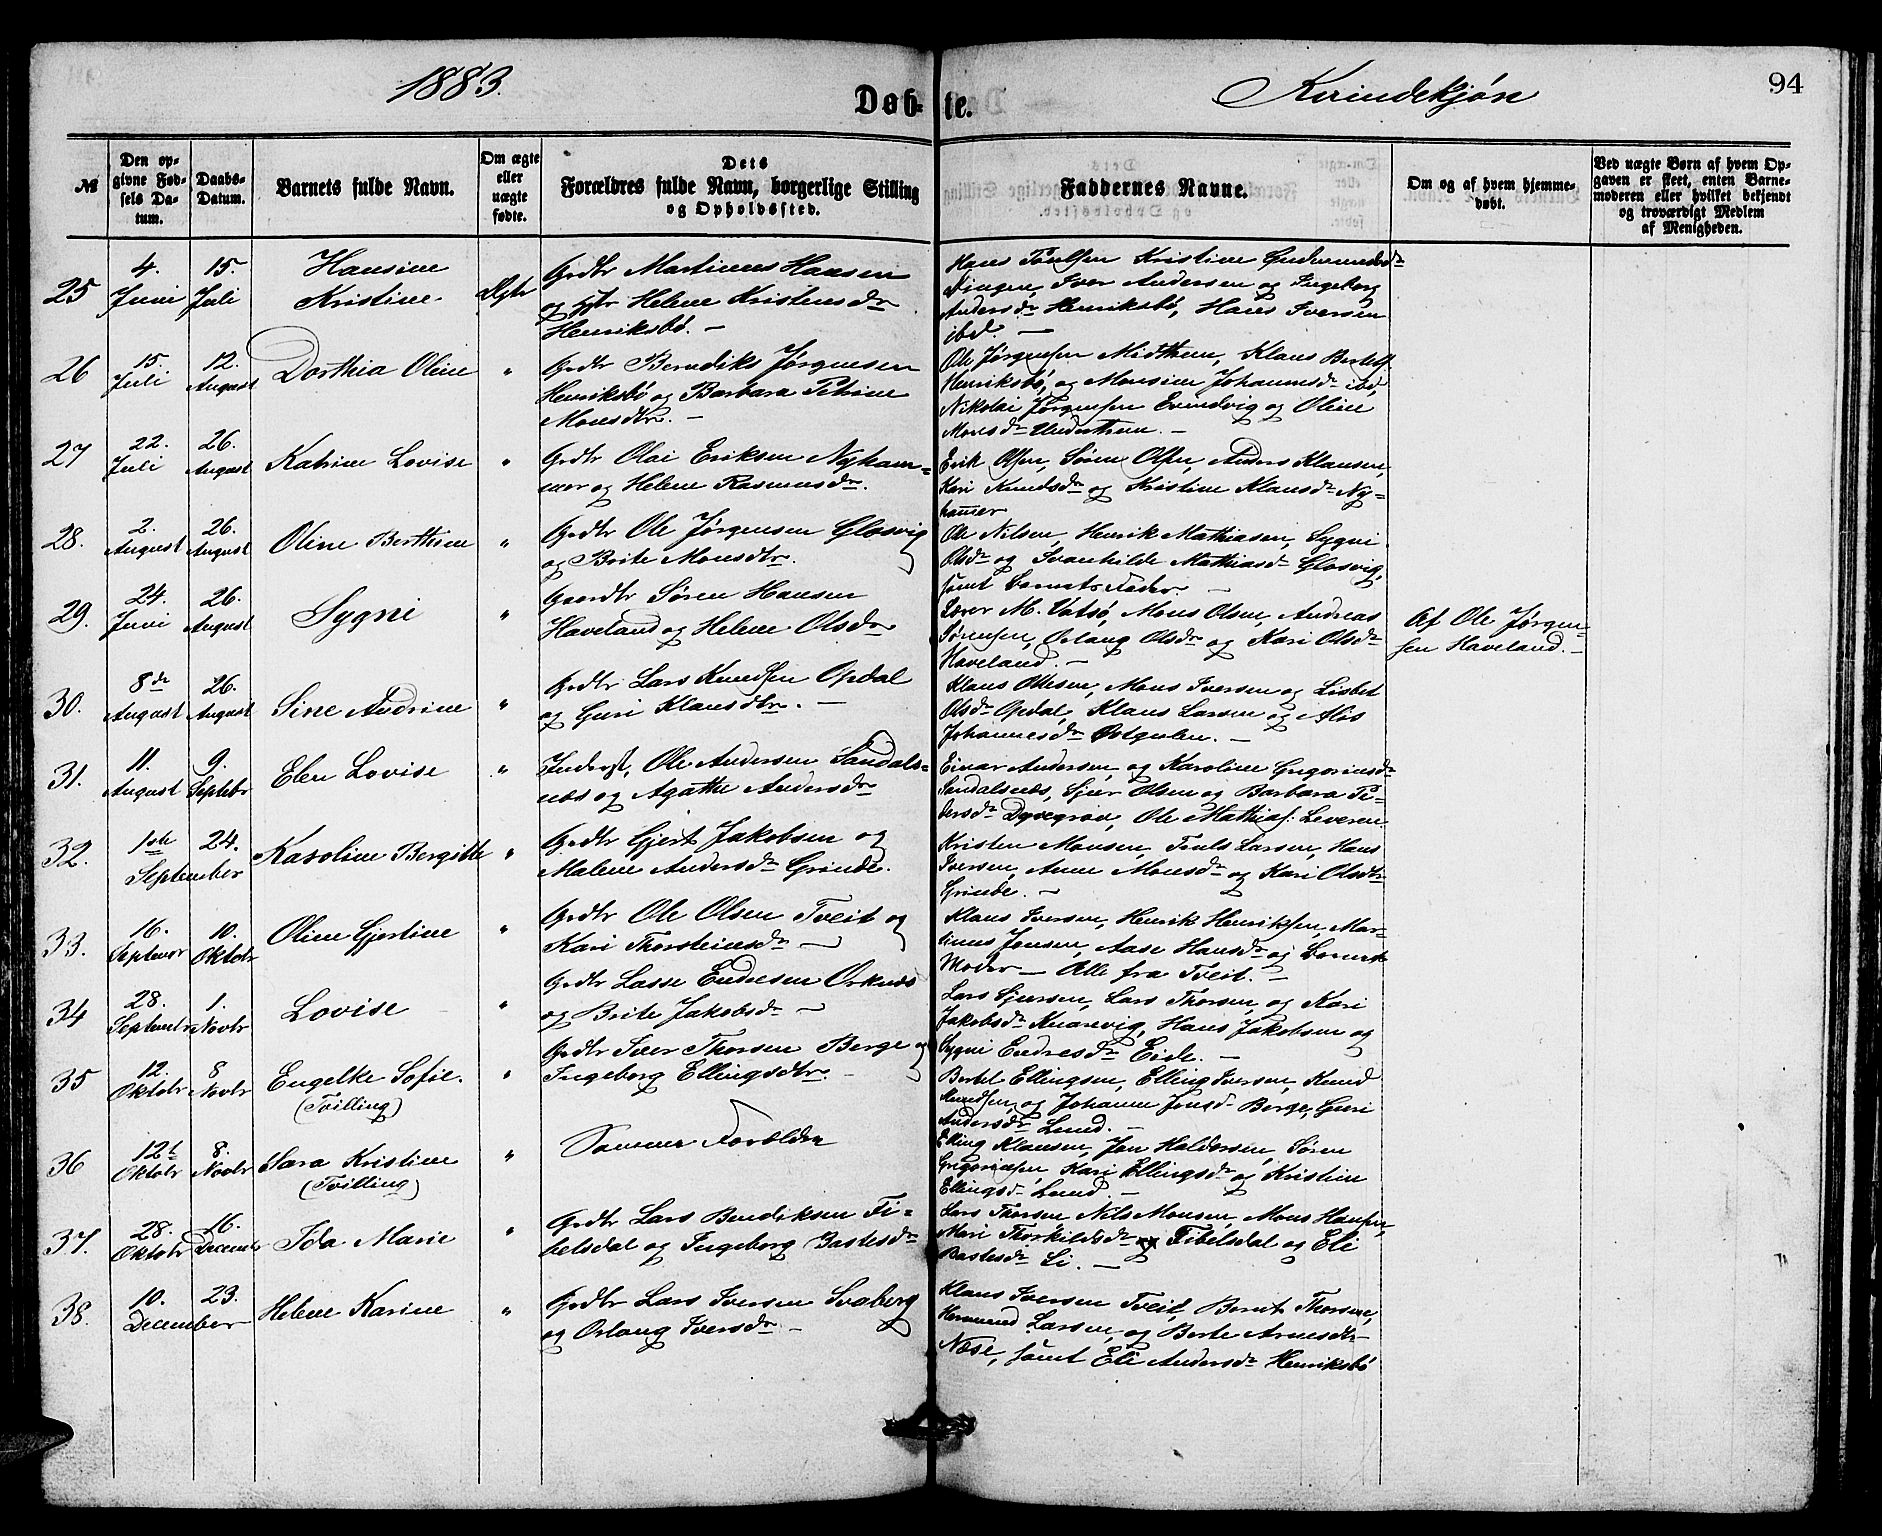 1883.
Døb-
te.
Kvindekjøn
94
№
Den op-
givne Fød-
sels Da-
tum.
Daabs-
Datum.
Barnets fulde Navn.
Om ægte
eller
uægte
fødte.
Dets
Forældres fulde Navn, borgerlige Stilling
og Opholdssted.
Faddernes Navne.
Om og af hvem hjemme-
døbt.
Ved uægte Børn af hvem Op-
gaven er skeet, enten Barne-
moderen eller hvilket bekjendt
og troværdigt Medlem
af Menigheden.
25
4.
Juni
15.
Juli
Hansine
Kristine
Ægte
Grdbr Martinus Hansen
og Helene Kristensdr
Henriksbø. —
Hans Kristine
Iver Andersen og Ingeborg
Andersdr Henriksbø, Hans Iversen
ibd. —
26
15.
Juli
12.
August
Dorthia Oline
"
Grdbr Berediks Jørgensen
Henriksbø og Barbara Petrine
Monsdtr. —
Ole Jørgensen Midttun, Klaus Bertels
Henriksbø, og Monsine Johannesdr ibd,
Nikolai Jørgensen Evindvig og Oline
Monsdr
27
22.
Juli
26.
August
Katrine Lovise
"
Grdbr Olai Eriksen Nyham-
mer og Helene Rasmusdr.
Erik Olsen, Søren Olsen, Anders Klausen,
Kari Knudsdr og Kristine Klausdr Ny-
ham̄er
28.
2.
August
26.
August
Oline Berthine
"
Grdbr Ole Jørgensen Glosvig
og Brite Monsdtr.
Ole Nilsen, Henrik Mathiasen, Sygni
Olsdr og Svanhilde Mathiasdr Glosvig,
samt Barnets Fader. —
29.
24.
Juni
26.
August
Sygni
"
Gaardbr Søren Hansen
Haveland og Helene Olsdr
Lærer M. Vatsø, Mons Olsen, Andreas
Sørensen, Orlaug Olsdr og Kari Olsdr
Haveland. —
Af Ole Jørgen-
sen Haveland. —
30.
8de
August
26.
August
Sine Andrine
"
Grdbr Lars Knudsen Opdal
og Guri Klausdtr. —
Klaus Ottesen, Mons Iversen og Lisbet
Olsdr Opdal, Klaus Larsen og Alis
Johannesdr Østgulen. —
31.
11.
August
9.
Septebr
Elen Lovise
"
Inderst, Ole Andersen Sandals-
næs og Agathe Andersdr
Einar Andersen og Karoline Grigoriusdr
Sandalsnæs, Sjur Olsen og Barbara Pe-
dersdr Dyvegrov, Ole Mathias.
32.
1ste
September
24.
Karoline Bergitte
"
Grdbr Gjert Jakobsen og
Malene Andersdr Grinde.
Kristen Monsen, Truls Larsen, Hans
Iversen, Anne Monsdr og Kari Olsdtr
Grinde. —
33.
16.
Septembr
10.
Oktobr
Oline Gjertine
"
Grdbr Ole Olsen Tveit og
Kari Thorsteinsdr —
Klaus Iversen, Henrik Henriksen, Mar-
tinus Jensen, Aase Hansdr og Barnets
Moder — Alle fra Tveit. —
34
28.
Septembr
1.
Novbr
Lovise
"
Grdbr Lasse Endresen Ørknæs
og Brite Jakobsdr —
Lars Sjursen, Lars Thorsen, og Kari
Jakobsdr Knarvig, Hans Jakobsen og
Sygni Endresdr Eide. —
35
12.
Oktobr
8
Novbr
Engelke Sofie.
(Tvilling)
"
Grdbr Iver Thorsen Berge og
Ingeborg Ellingsdtr. —
Bertel Ellingsen, Elling Iversen, Knud
Knudsen og Johanne Jonsdr Berge, Guri
Andersdr Lund. —
36
12te
Oktobr
8.
Novbr
Sara Kristine
(Tvilling)
"
Samme Forældre
Elling Klausen, Jon Haldorsen, Søren
Grigoriusen, Kari Ellingsdr og Kristine
Ellingsdr Lund. —
37.
28.
Oktobr
16.
Decembr
Ida Marie
"
Grdbr Lars Bendiksen Ti-
belsdal og Ingeborg Bastesdr
Lars Thorsen, Nils Monsen, Mons Hansen,
Mari Thorkildsdr Tibelsdal og Eli
Bastesdr Li. —
38.
10.
December
23.
Helene Karine
"
Grdbr Lars Iversen Svaberg
og Orlaug Iversdr —
Klaus Iversen Tveit, Bernt Thorsen,
Hermund Larsen, og Berte Arnesdtr
Næse, samt Eli Andersdr Henriksbø